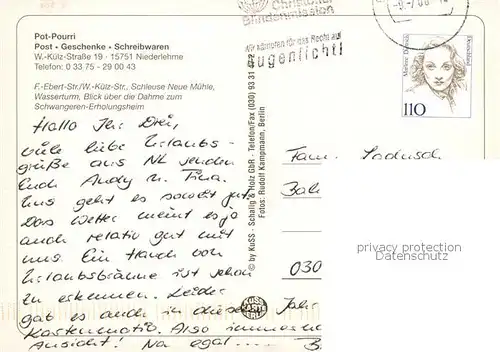 Pot-Pourri
Post • Geschenke • Schreibwaren
W.-Külz-Straße 19 · 15751 Niederlehme
Telefon: 0 33 75 - 29 00 43
F.-Ebert-Str./W.-Külz-Str., Schleuse Neue Mühle,
Wasserturm, Blick über die Dahme zum
Schwangeren-Erholungsheim
Hallo Ihr Drei,
viele liebe Urlaubs-
grüße aus NL senden
Euch Andy u. Tina.
Uns geht es soweit gut.
Das Wetter meint es ja
auch relativ gut mit
uns. Ein Hauch von
Urlaubsbräune ist schon
zu erkennen. Leider
gab es auch in diesem Jahr
Kartenmotiv. Also
Ansicht! Na egal....
© by KaSS - Schalig & Holz GbR - Telefon/Fax (030) 93 31
Fotos: Rudolf Kampmann, Berlin
Christoffel
Blindenmission
Wir kämpfen für das Recht auf
Augenlicht!
Marlene Dietrich
Deutschland
110
Fam.
030
privacy protection
Datenschutz